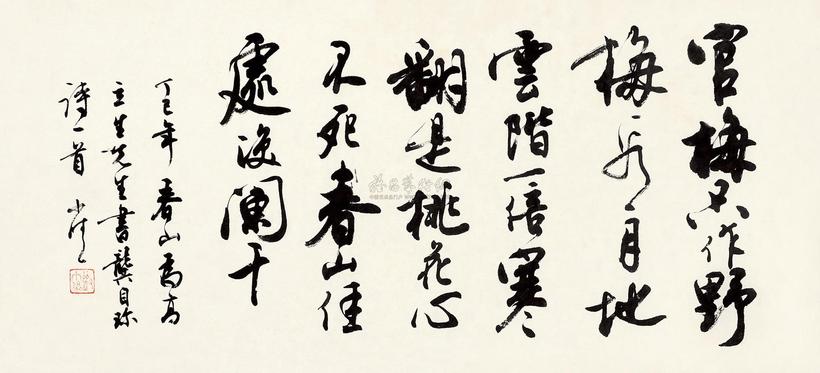 官梅只作野
梅看月地
雲階一倍寒
翻是桃花心
不死春山佳
處淚闌干
丁巳年春山為高
立生先生書龔自珍
詩一首